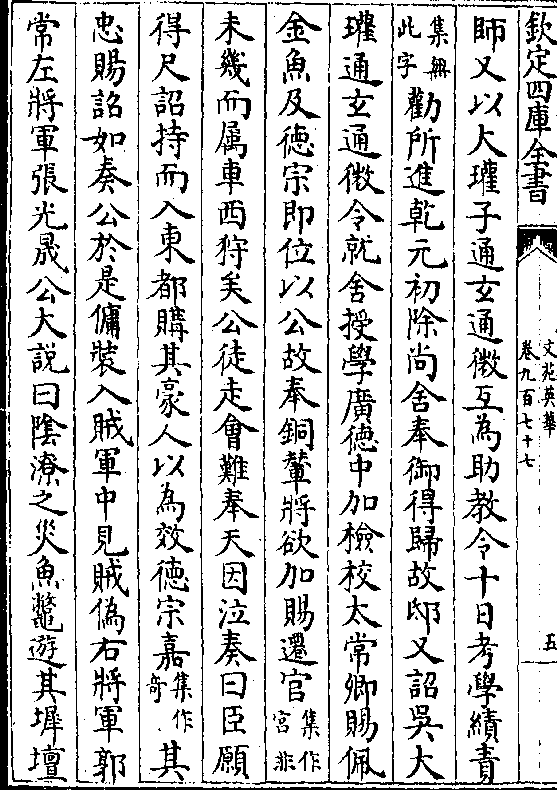 欽定四庫全書
文苑英華
卷九百七十七
五
師又以大瓘子通玄通微互為助教令十日考學績責
集無此字
勸所進乾元初除尚舍奉御得歸故邸又詔吳大
瓘通玄通微令就舍授學廣徳中加檢校太常卿賜佩
金魚及徳宗即位以公故奉銅輦將欲加賜遷官
集作宫非
未幾而属車西狩矣公徒走會難奉天因泣奏曰臣願
得尺詔持而入東都購其豪人以為效徳宗嘉
集作奇
其
忠賜詔如奏公於是傭裝入賊軍中見賊偽右將軍郭
常左將軍張光晟公大說曰隂潦之災魚鼈遊其墀壇